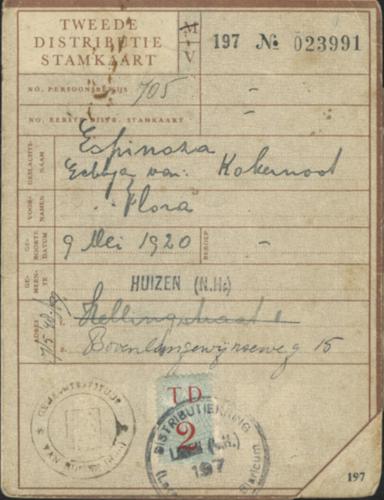 TWEEDE
DISTRIBUTIE
STAMKAART
M
V
197 No. 023991
NO. PERSOONSBEWIJS 705 -
NO. EERSTE DISTR. STAMKAART -
GESLACHTS-
NAAM
Espinoza
Echtg. van: Kokernoot
VOOR-
NAMEN
Flora
GE-
BOORTE-
DATUM
9 Mei 1920
BEROEP
-
GE-
MEEN-
TE
HUIZEN (N.H.)
ADRES
Hellingstraat
Bovenlangewijnseweg 15
T D
2
DISTRIBUTIEKRING
(N.H.)
197
Blaricum
197